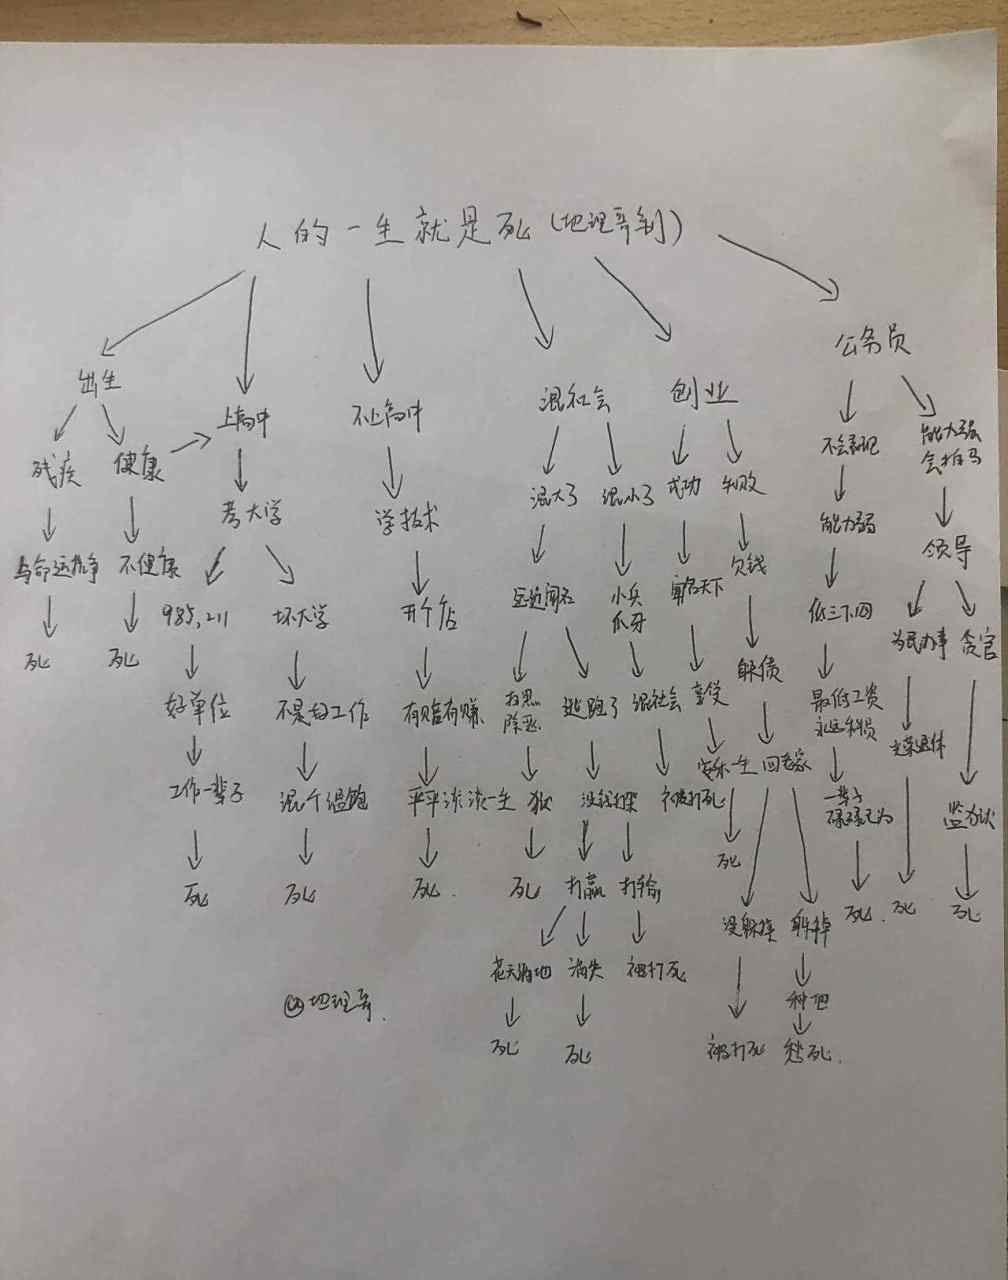 人的一生就是死(地理哥制)
公务员
出生
上高中
不上高中
混社会
创业
残疾
健康
不会表现
能力强
会拍马
考大学
学技术
混大了
混小了
成功
失败
能力弱
领导
与命运抗争
不健康
985,211
坏大学
开个店
远近闻名
小兵
爪牙
闻名天下
欠钱
低三下四
为民办事
贪官
死
死
好单位
不是好工作
有赔有赚
扫黑
除恶
逃跑了
混社会
享受
躲债
最低工资
永远科员
光荣退休
工作一辈子
混个温饱
平平淡淡一生
没钱打架
被打死
安乐一生
回老家
一辈子
碌碌无为
监狱
死
死
死.
死
打赢
打输
死
没躲掉
躲掉
死.
死
死
花天酒地
消失
被打死
种地
@地理哥.
死
死
被打死
愁死.